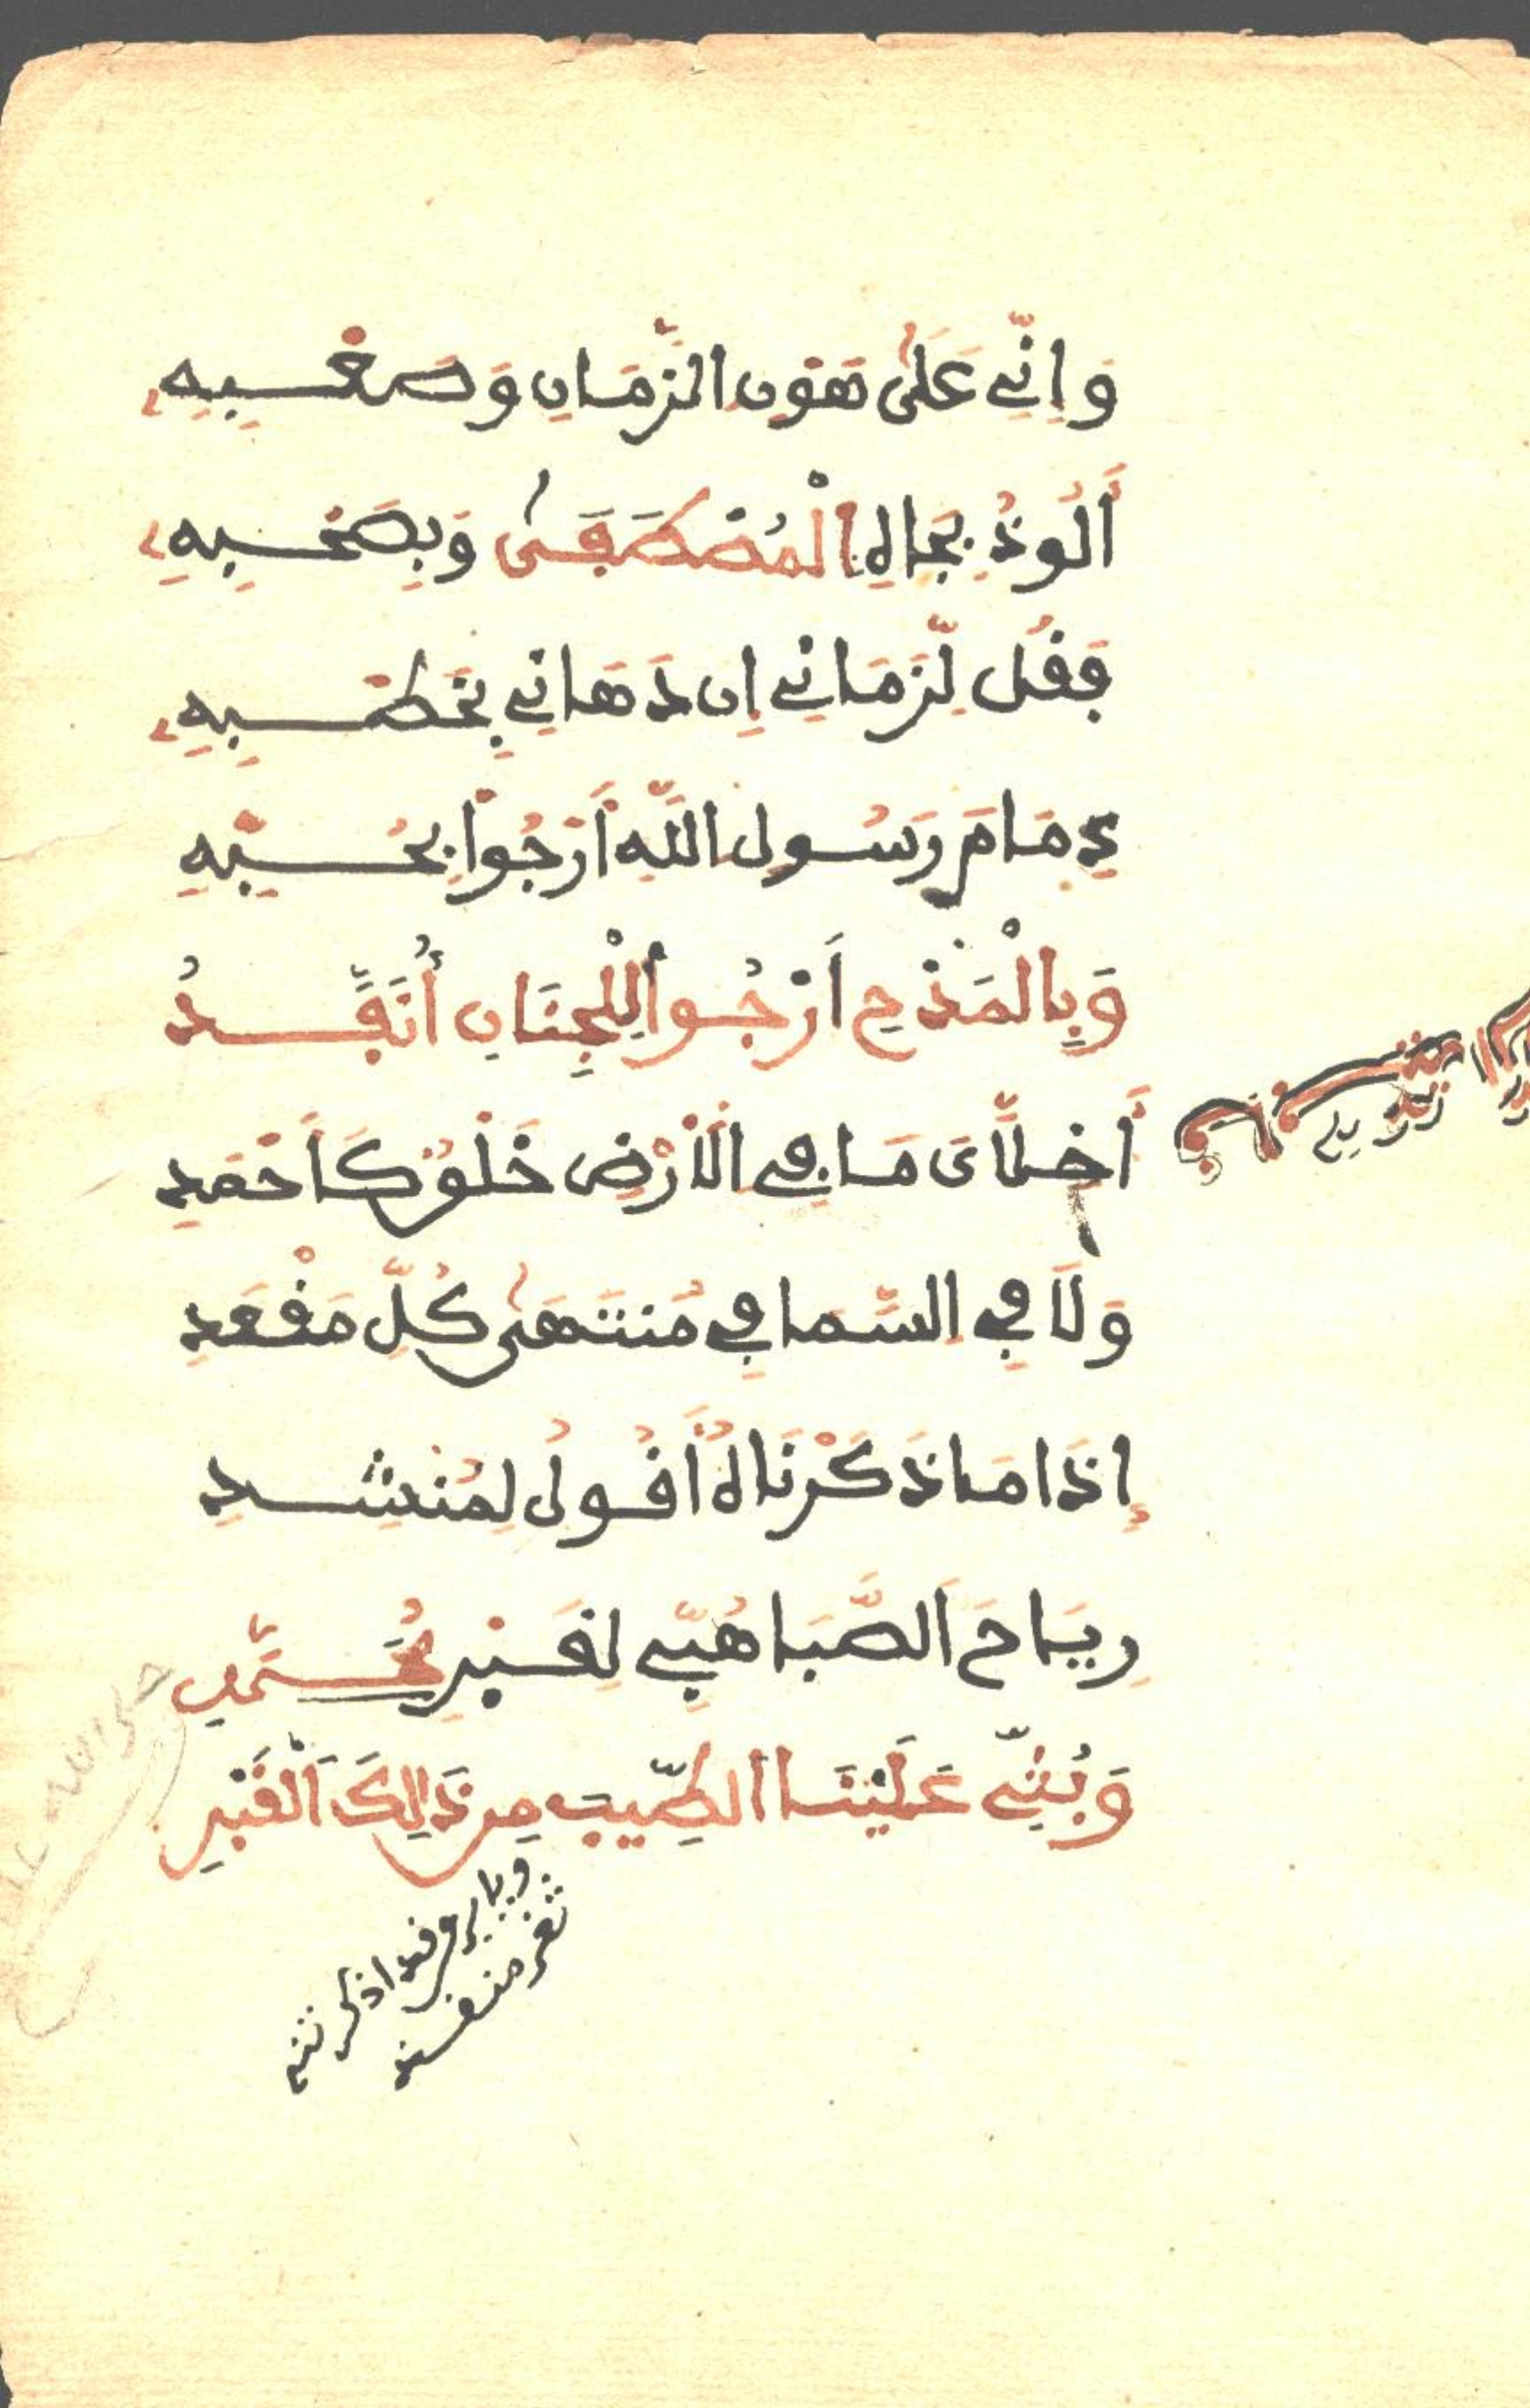 وَإِنِّي عَلَى هَوْنِ الزَّمَانِ وَصَعْبِهِ
أَلُوذُ بِجَاهِ الْمُصْطَفَى وَبِصَحْبِهِ
فَقُل لِّزَمَانِي إِن دَهَانِي بِخَطْبِهِ
ذِمَامَ رَسُولِ اللَّهِ أَرْجُوا بِحُبِّهِ
وَبِالْمَدْحِ أَرْجُوا لِلْجِنَانِ أُنَفَّدُ
أَخِلَّاىَ مَا فِي الْأَرْضِ خَلْقٌ كَأَحْمَدِ
وَلَا فِي السَّمَا فِي مُنتَهَى كُلِّ مَقْعَدِ
إِذَا مَا ذَكَرْنَاهُ أَقُولُ لِمُنْشِدِ
رِيَاحَ الصَّبَا هُبِّي لِقَبْرِ مُحَمَّدٍ
وَبُثِّي عَلَيْنَا الطِّيبَ مِن ذَالِكَ الْقَبْرِ